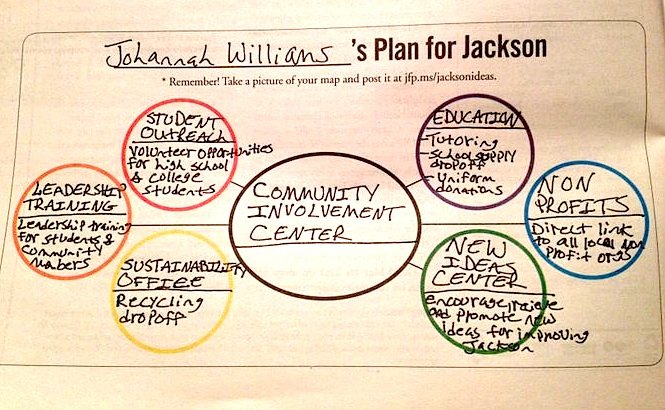 Johannah Williams 's Plan for Jackson
* Remember! Take a picture of your map and post it at jfp.ms/jacksonideas.
STUDENT
OUTREACH
Volunteer opportunities
for high school
& college
students
EDUCATION
-Tutoring
-School supply
dropoff
-Uniform
donations
LEADERSHIP
TRAINING
Leadership training
for students &
community
COMMUNITY
INVOLVEMENT
CENTER
NON
PROFITS
Direct link
to all local non
profit orgs
SUSTAINABILITY
OFFICE
Recycling
dropoff
NEW
IDEAS
CENTER
encourage, recieve
and promote new
ideas for improving
Jackson